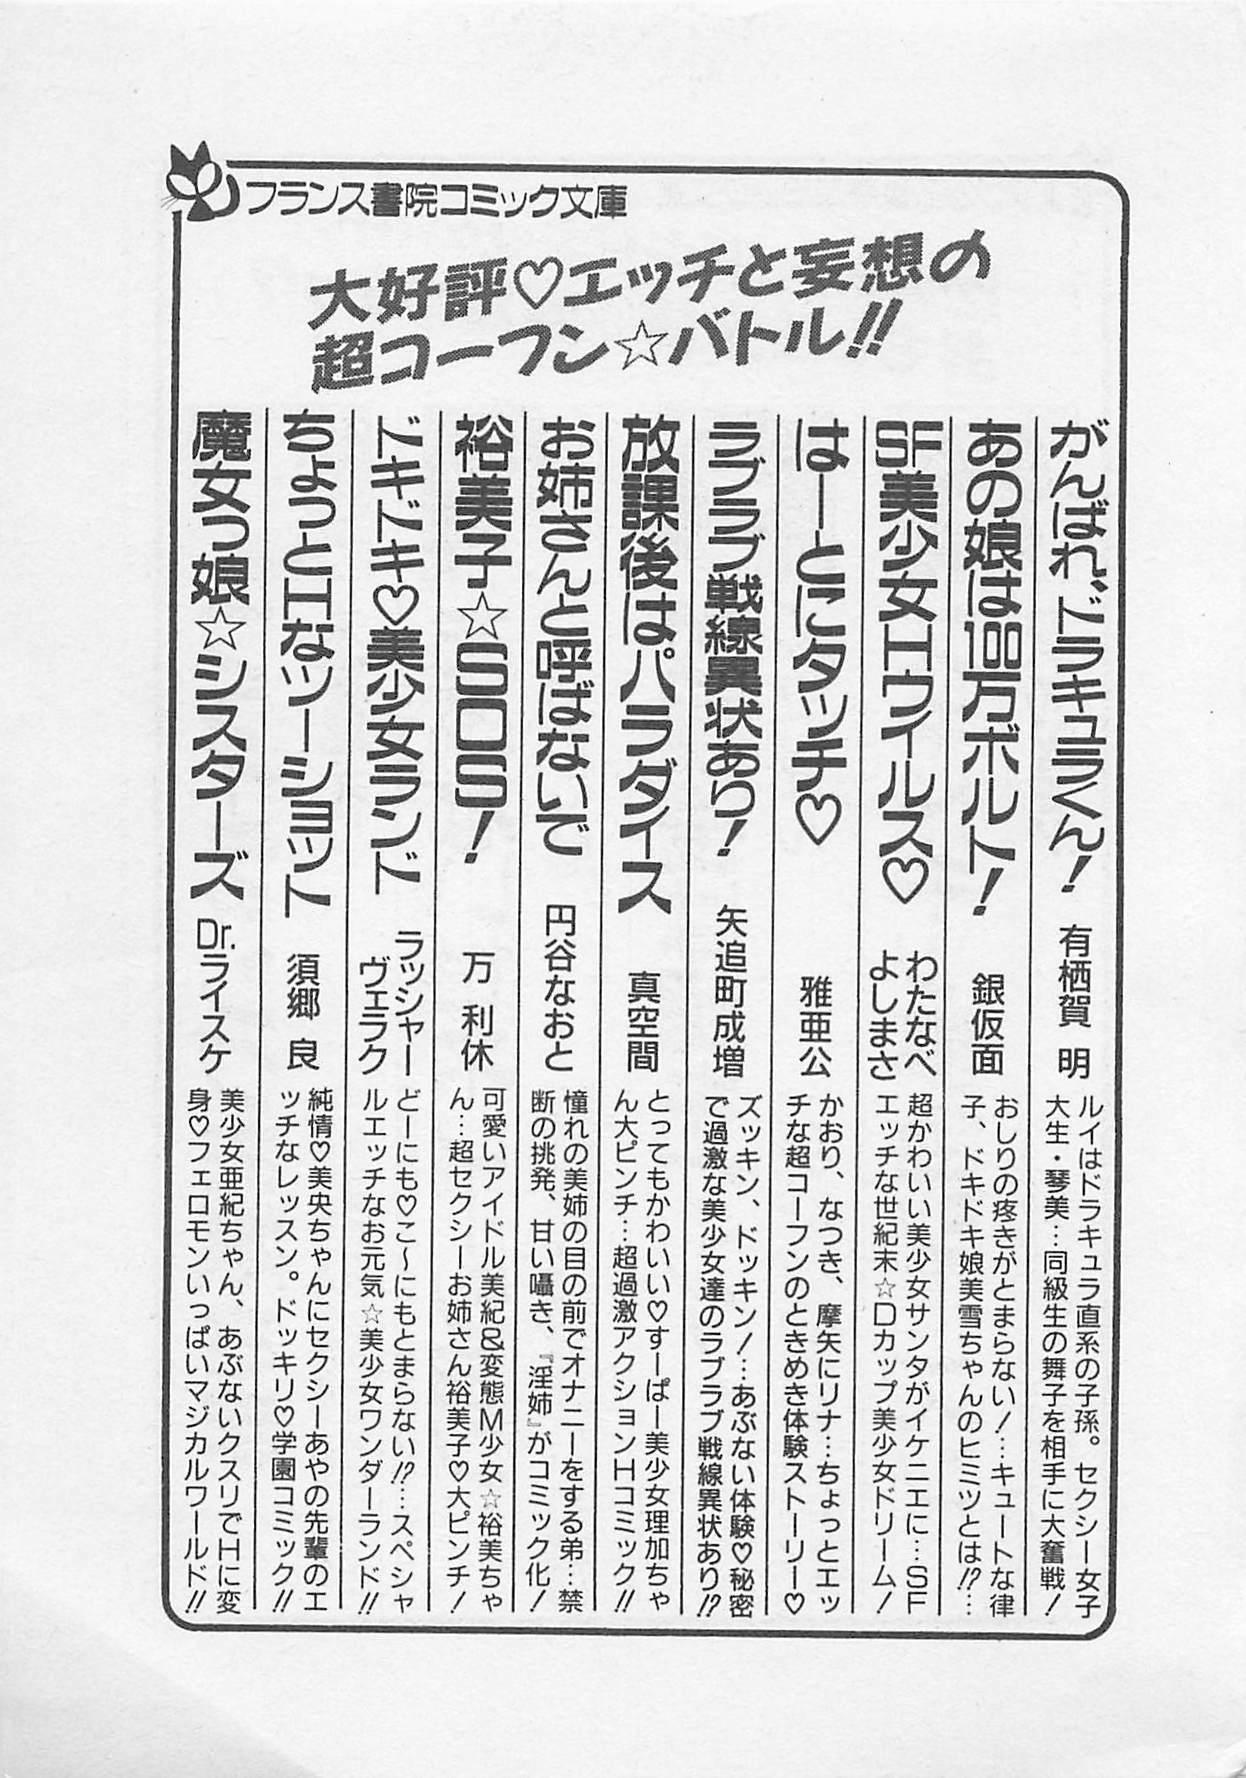 フランス書院コミック文庫
大好評♡エッチと妄想の
超コーフン☆バトル!!
がんばれ、ドラキュラくん!
有栖賀 明
ルイはドラキュラ直系の子孫。セクシー女子
大生・琴美…同級生の舞子を相手に大奮戦!
あの娘は100万ボルト!
銀仮面
おしりの疼きがとまらない!…キュートな律
子、ドキドキ娘美雪ちゃんのヒミツとは!?…
SF美少女Hウイルス♡
わたなべ
よしまさ
超かわいい美少女サンタがイケニエに…SF
エッチな世紀末☆Dカップ美少女ドリーム!
はーとにタッチ♡
雅亜公
かおり、なつき、摩矢にリナ…ちょっとエッ
チな超コーフンのときめき体験ストーリー♡
ラブラブ戦線異状あり!
矢追町成増
ズッキン、ドッキン!…あぶない体験♡秘密
で過激な美少女達のラブラブ戦線異状あり!?
放課後はパラダイス
真空間
とってもかわいい♡すーぱー美少女理加ちゃ
ん大ピンチ…超過激アクションHコミック!!
お姉さんと呼ばないで
円谷なおと
憧れの美姉の目の前でオナニーをする弟…禁
断の挑発、甘い囁き、『淫姉』がコミック化!
裕美子☆SOS!
万 利休
可愛いアイドル美紀&変態M少女☆裕美ちゃ
ん…超セクシーお姉さん裕美子♡大ピンチ!
ドキドキ♡美少女ランド
ラッシャー
ヴェラク
どーにも♡こ〜にもとまらない!?…スペシャ
ルエッチなお元気☆美少女ワンダーランド!!
ちょっとHなツーショット
須郷 良
純情♡美央ちゃんにセクシーあやの先輩のエ
ッチなレッスン。ドッキリ♡学園コミック!!
魔女っ娘☆シスターズ
Dr.ライスケ
美少女亜紀ちゃん、あぶないクスリでHに変
身♡フェロモンいっぱいマジカルワールド!!